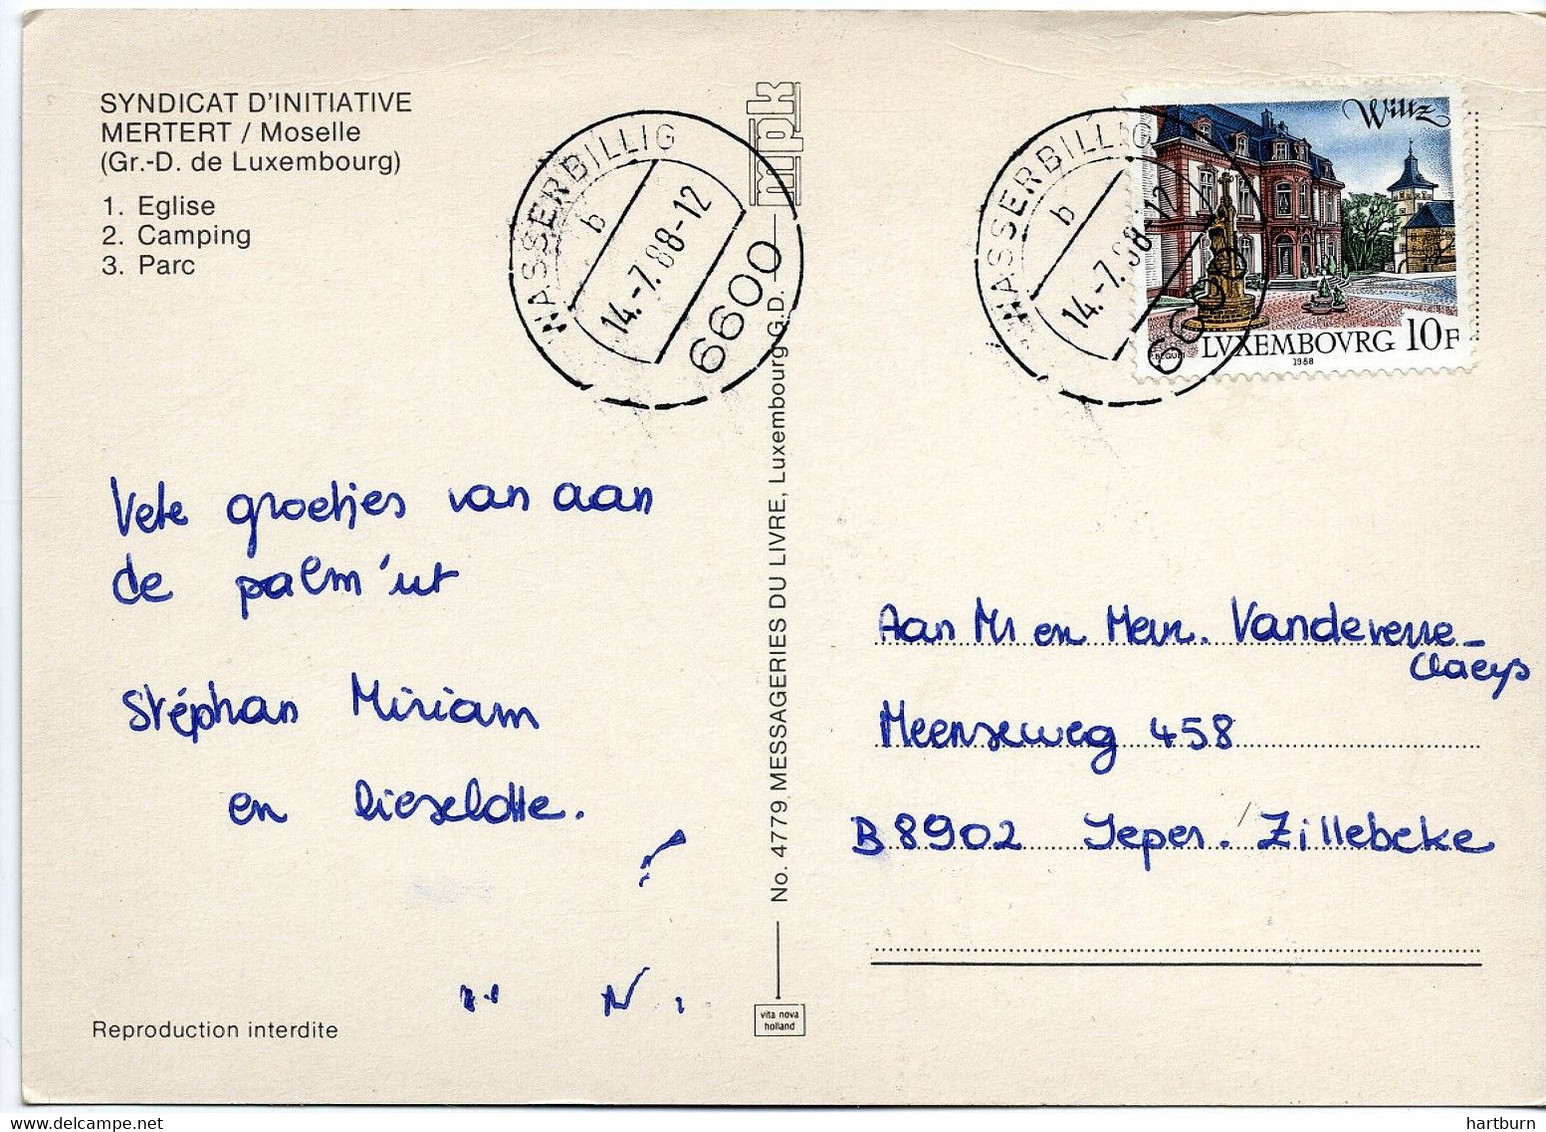 SYNDICAT D'INITIATIVE
MERTERT / Moselle
(Gr.-D. de Luxembourg)
1. Eglise
2. Camping
3. Parc
WASSERBILLIG
b
14.-7.88-12
6600
mpk
WASSERBILLIG
b
14.-7.88-12
6600
Wiltz
LVXEMBOVRG 10F
1988
No. 4779 MESSAGERIES DU LIVRE, Luxembourg G.D.
Vele groetjes van aan
de palm 'ut
Stéphan Miriam
en lieselotte.
Aan Mr en Mevr. Vandevenne-
Claeys
Meenseweg 458
B 8902 Ieper. Zillebeke
Reproduction interdite
vita nova
holland
hartburn